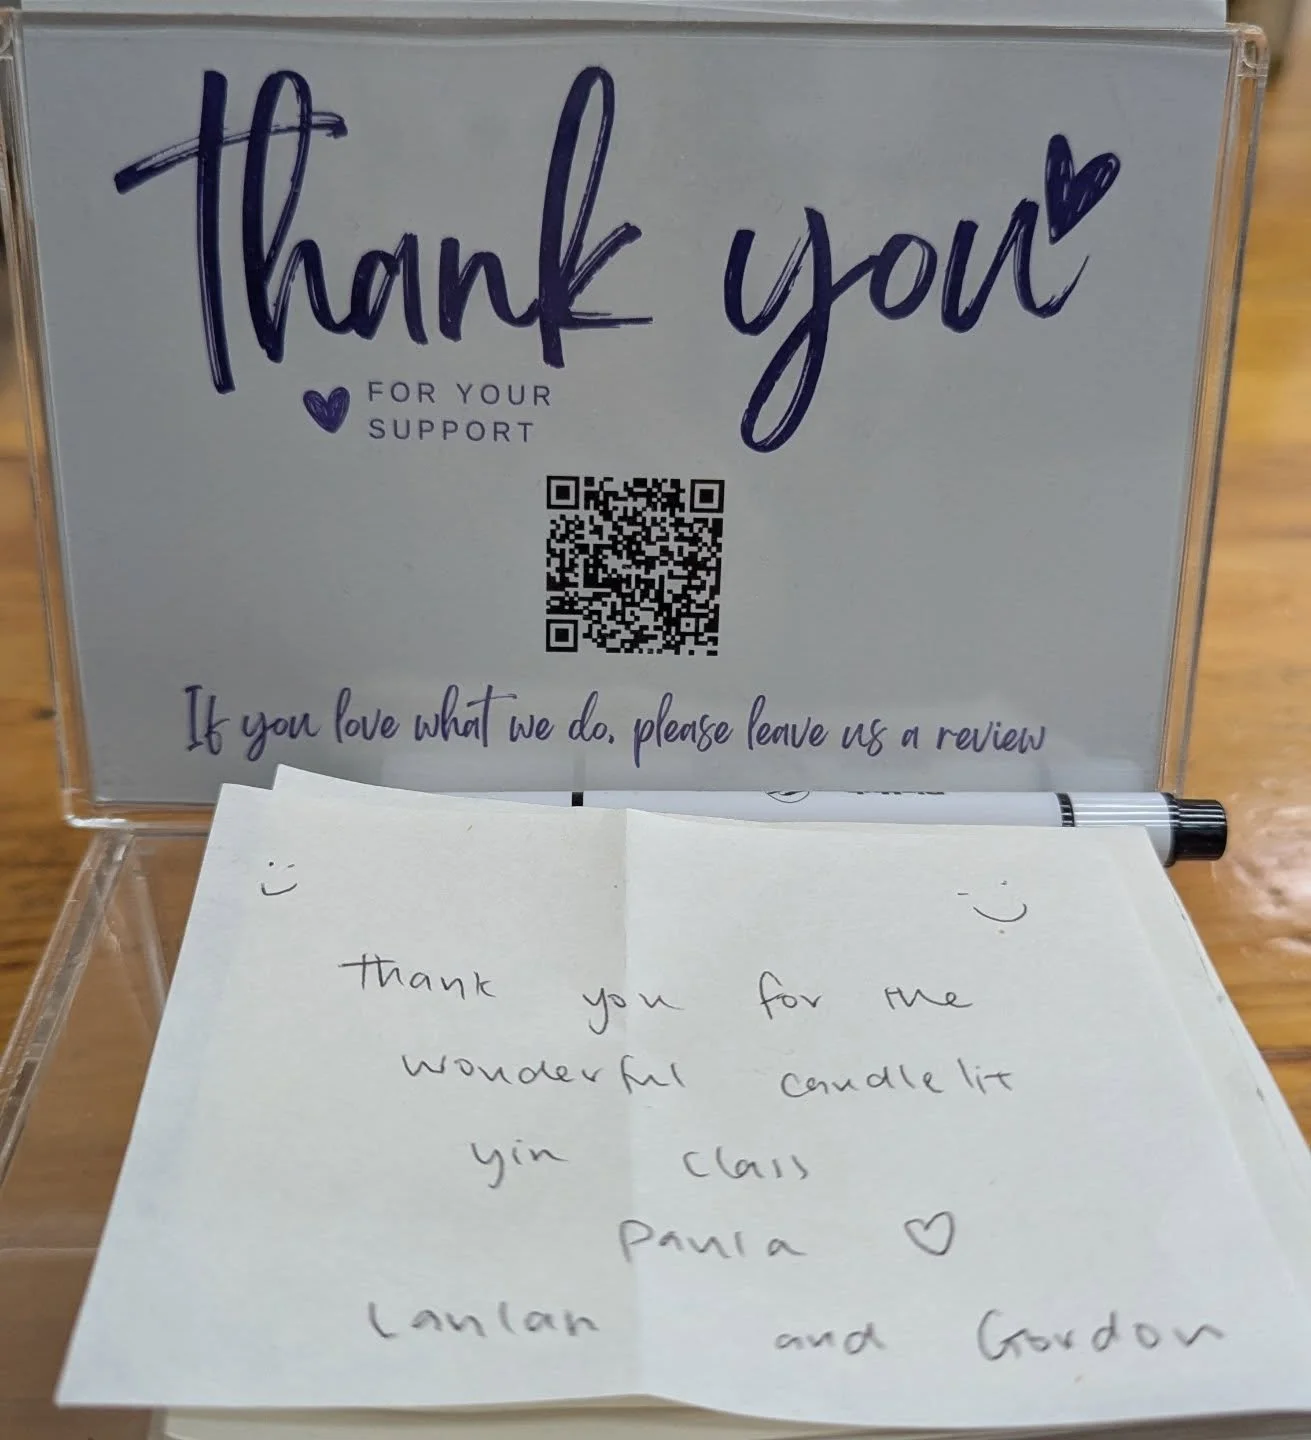 thank you
FOR YOUR
SUPPORT
If you love what we do, please leave us a review
Thank you for the
wonderful candlelit
yin class
Paula
Lanlan and Gordon